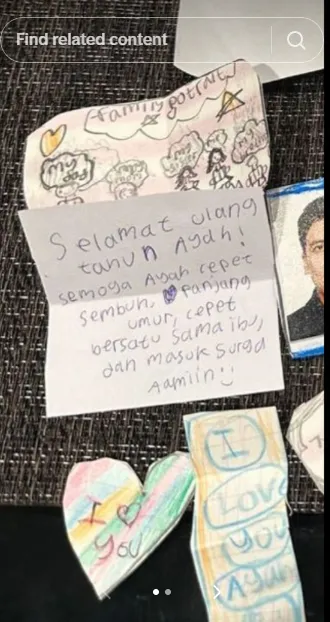 Find related content
family potrait
my dad
Selamat ulang
tahun Ayah!
semoga Ayah cepet
sembuh, panjang
umur, cepet
bersatu sama ibu,
dan masuk surga
Aamiin
I
you
I
Love
You